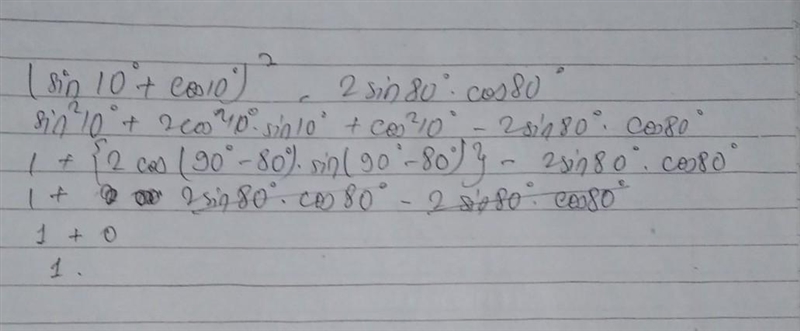 (sin 10° + cos 10°)² - 2 sin 80° · cos 80°
sin²10° + 2cos²10° · sin 10° + cos²10° - 2 sin 80° · cos 80°
1 + {2 cos (90° - 80°) · sin (90° - 80°)} - 2 sin 80° · cos 80°
1 + 2 sin 80° · cos 80° - 2 sin 80° · cos 80°
1 + 0
1 .